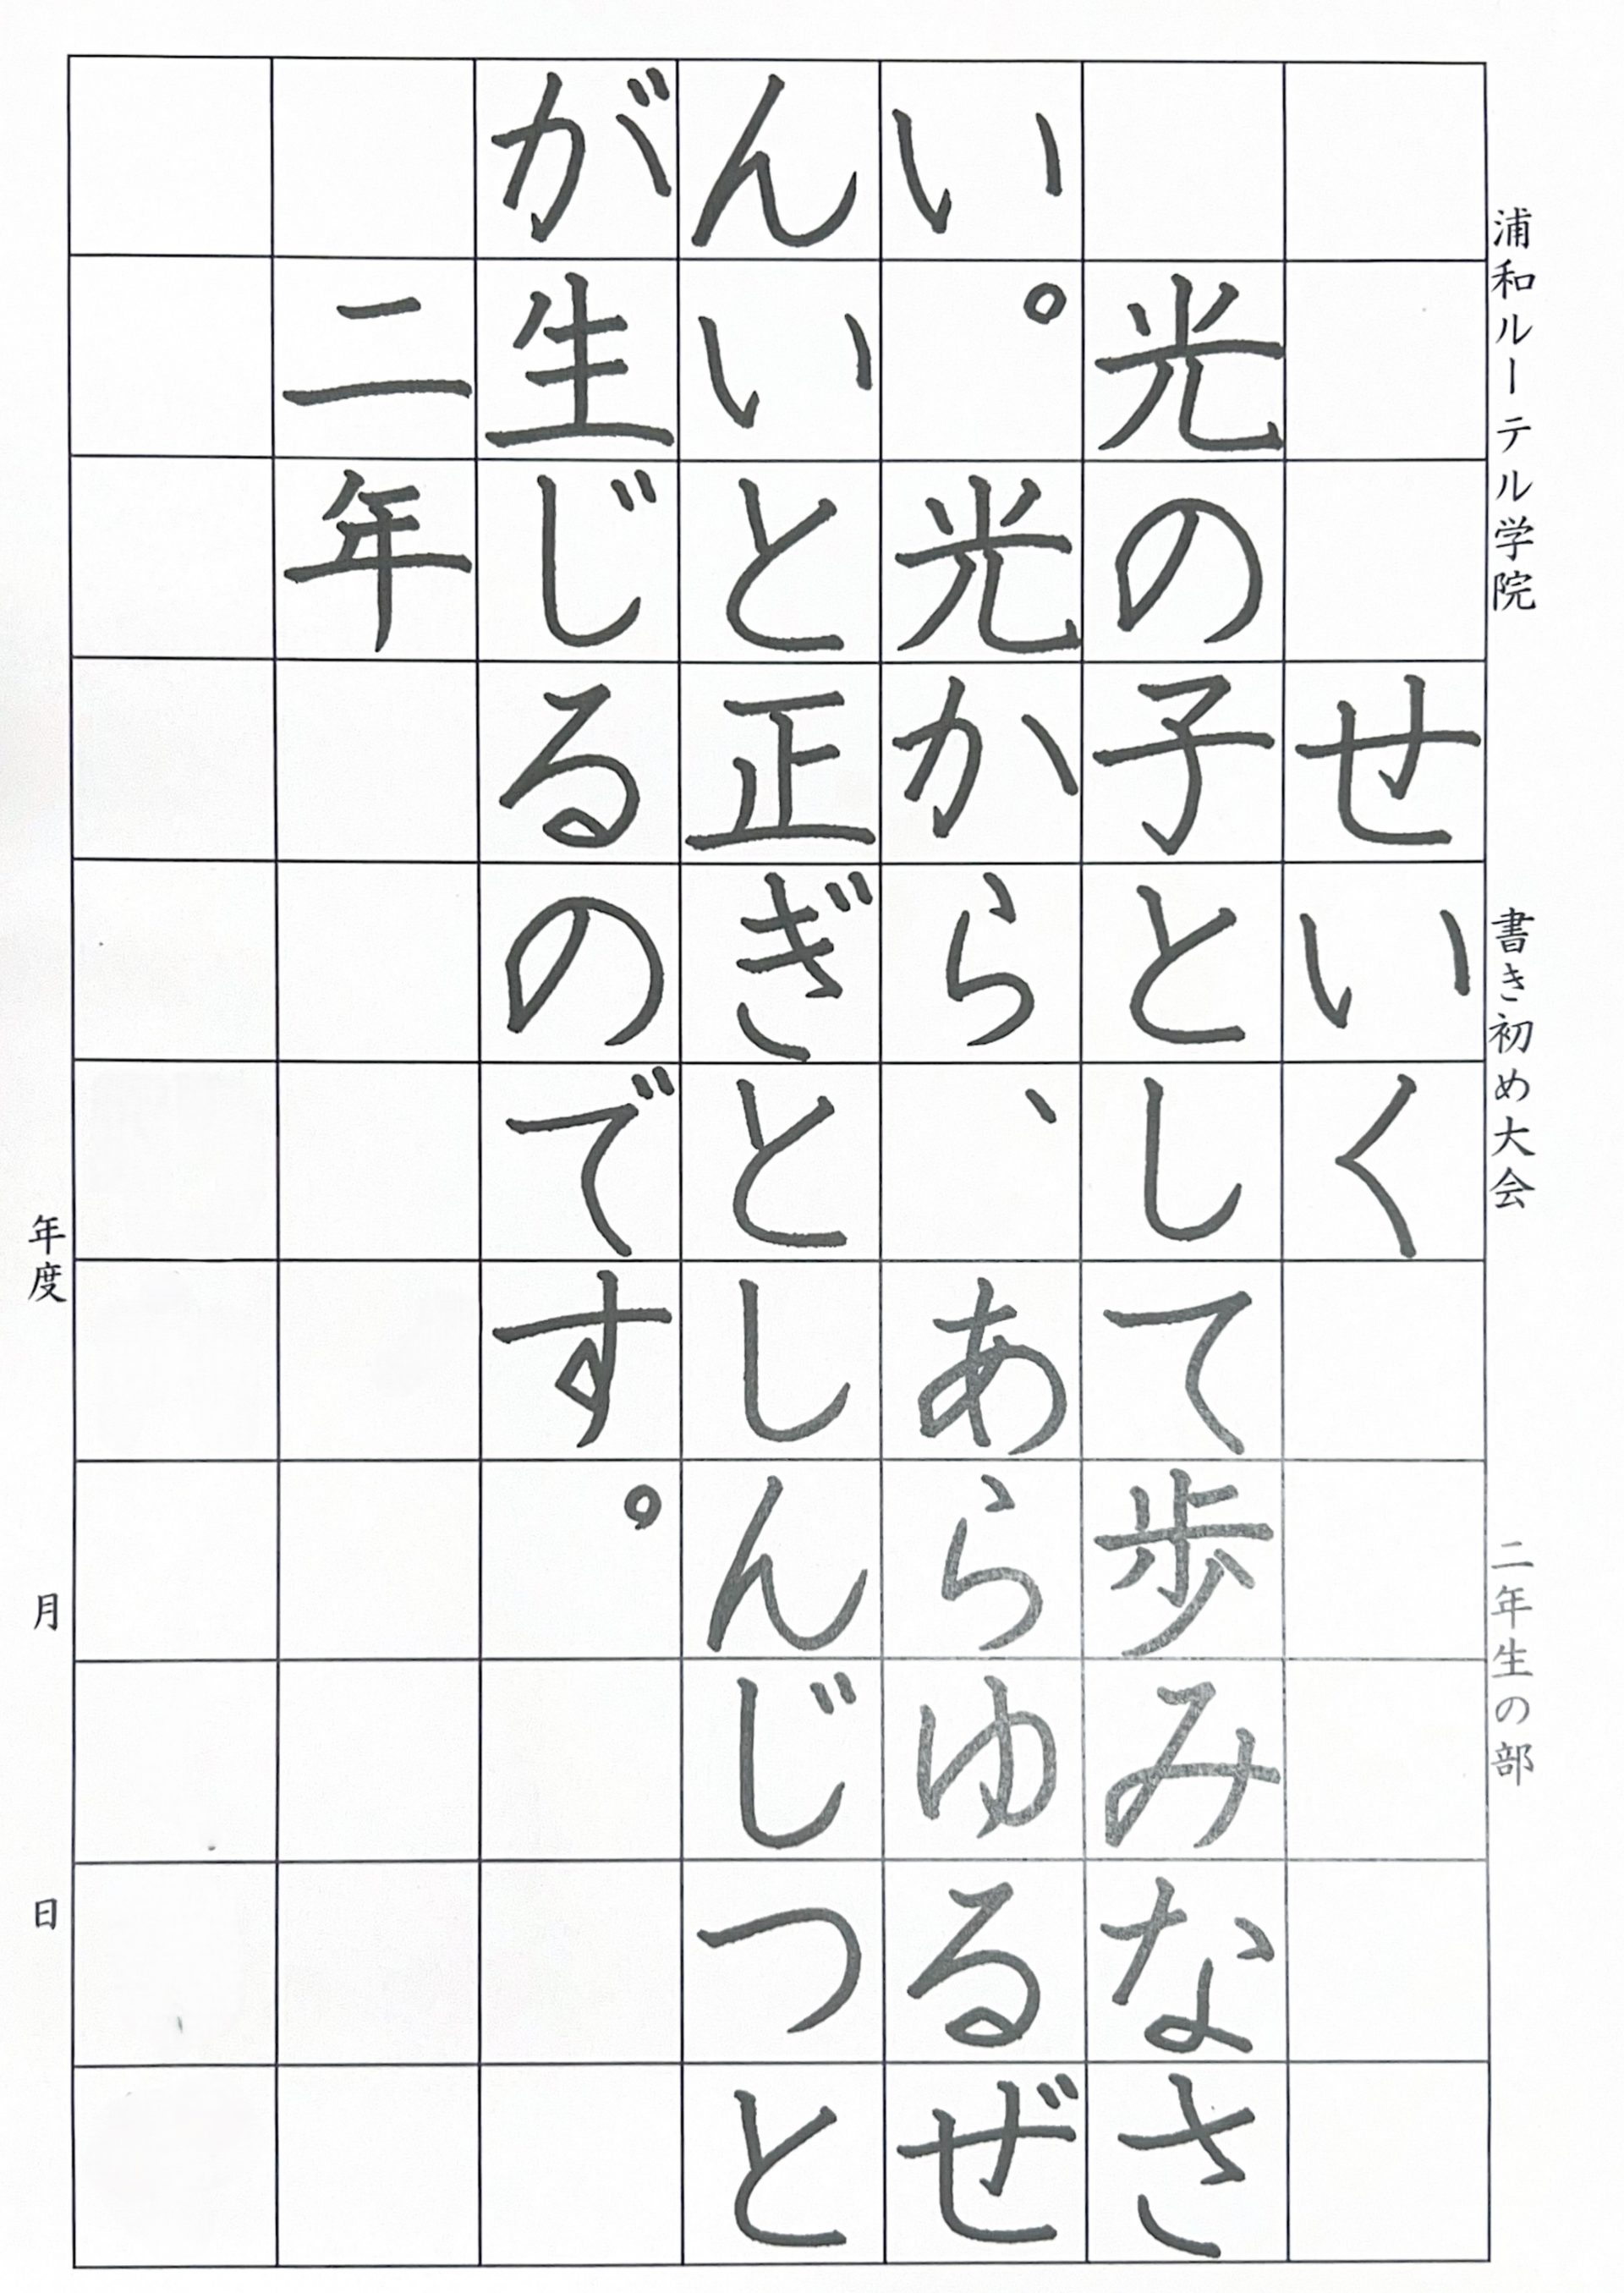 浦和ルーテル学院 書き初め大会 二年生の部
せいく
光の子として歩みなさ
い。光から、あらゆるぜ
んいと正ぎとしんじつと
が生じるのです。
二年
年度 月 日